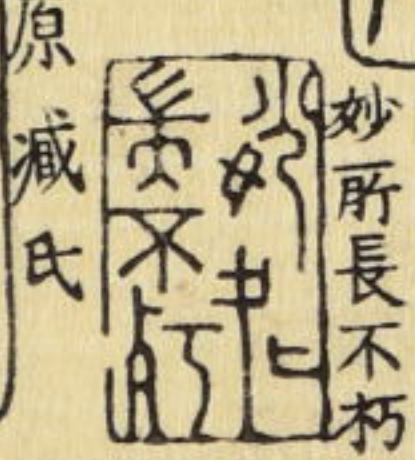 妙所長不朽
妙所
長不朽
原臧氏